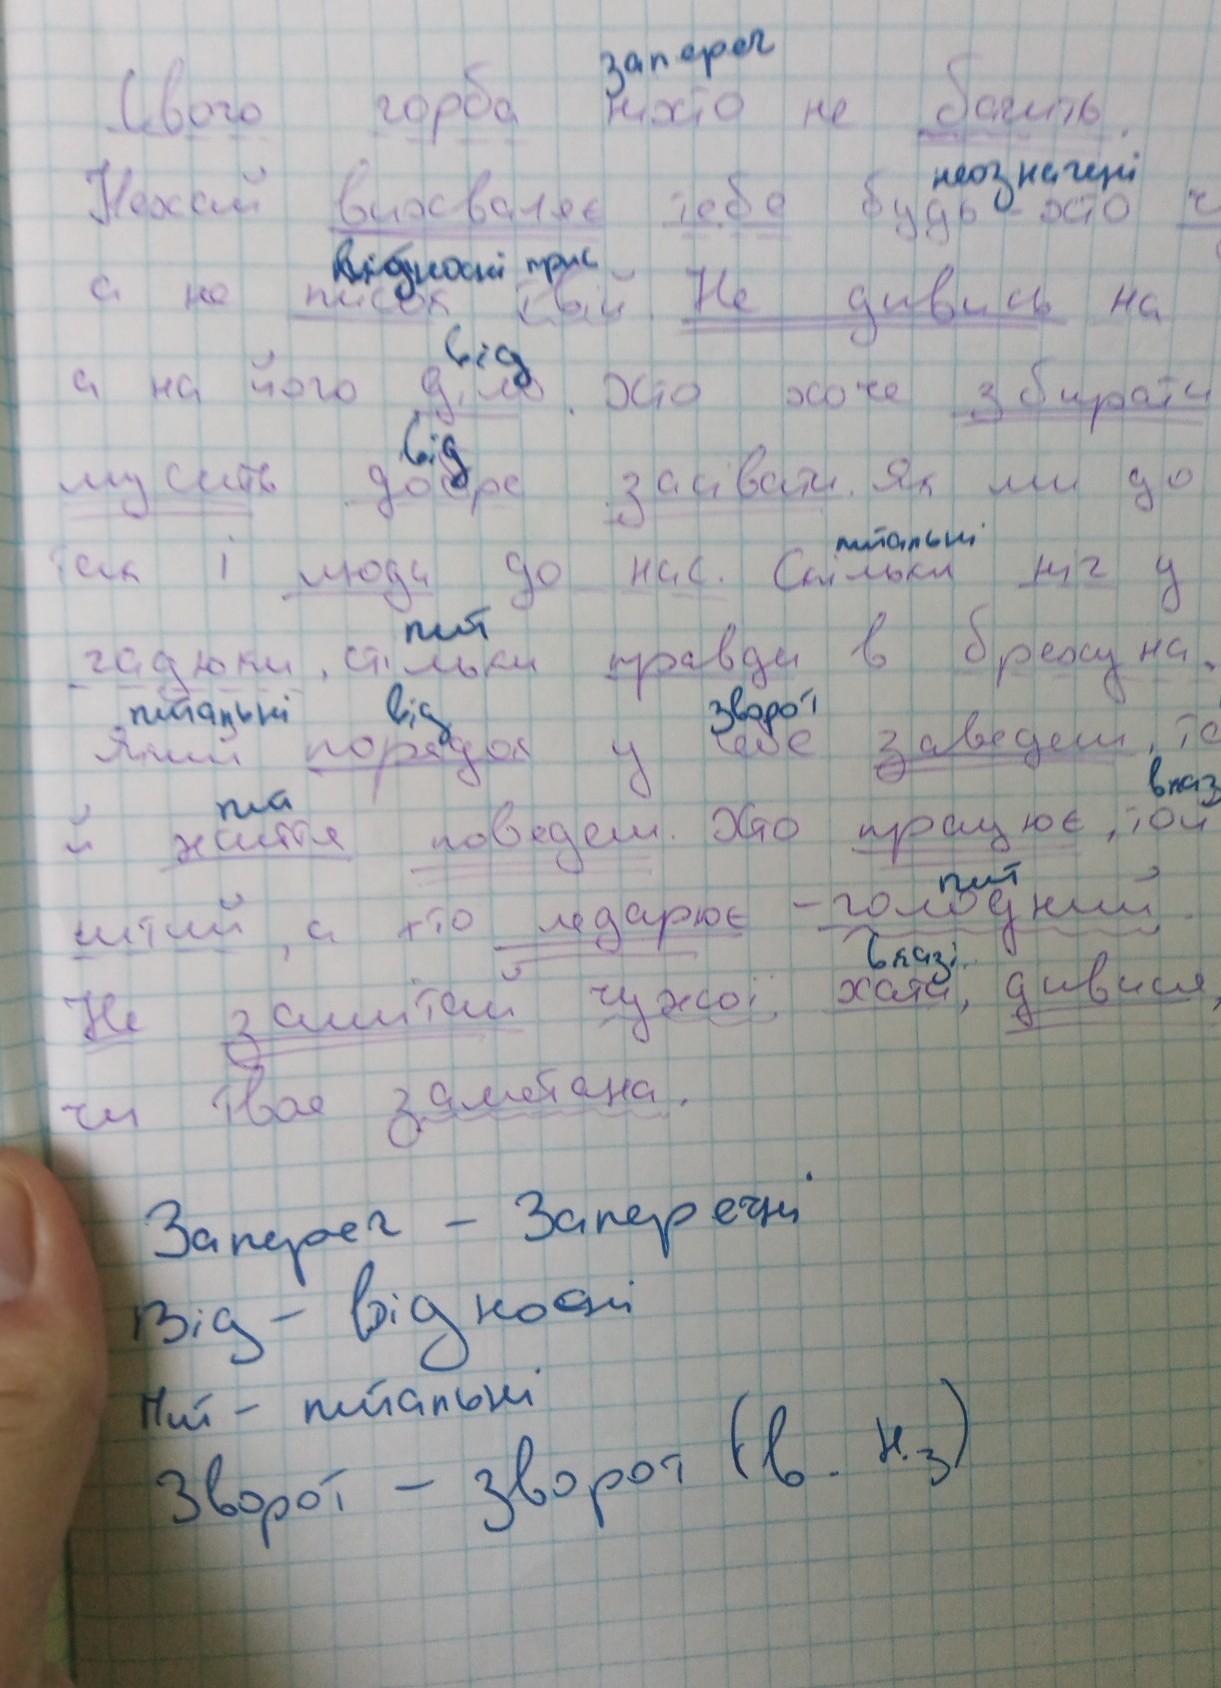 запереч
Свого горба ніхто не бачить.
неозначені
Нехай вихваляє тебе будь-хто
відносні прис
а не писок твій. Не дивись на
від
а на його діло. Хто хоче збирати
від
мусить добре засівати. Як ми до
питальні
так і люди до нас. Скільки ніг у
пит
гадюки, стільки правди в брехуна.
питальні від зворот
Який порядок у себе заведеш,
пит вказ
й життя поведеш. Хто працює, той
пит
ситий, а хто ледарює - голодний.
вказі.
Не замітай чужої хати, дивися,
чи твоя заметана.
Запереч - Заперечні
Від - відносні
Пит - питальні
Зворот - зворот (в. н.з)